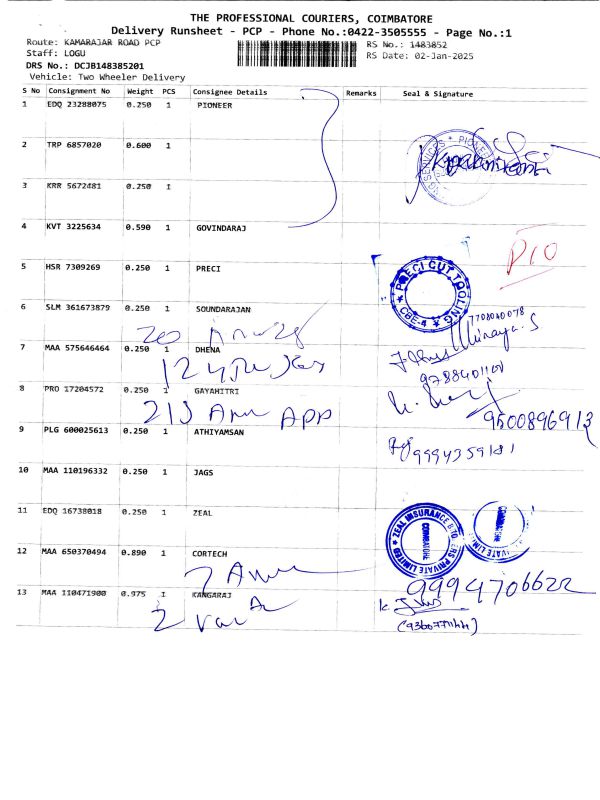 THE PROFESSIONAL COURIERS, COIMBATORE
Delivery Runsheet - PCP - Phone No.:0422-3505555 - Page No.:1
Route: KAMARAJAR ROAD PCP
RS No.: 1483852
Staff: LOGU
RS Date: 02-Jan-2025
DRS No.: DCJB148385201
Vehicle: Two Wheeler Delivery
S No Consignment No Weight PCS Consignee Details Remarks Seal & Signature
1 EDQ 23288075 0.250 1 PIONEER
2 TRP 6857020 0.600 1
3 KRR 5672481 0.250 1
4 KVT 3225634 0.590 1 GOVINDARAJ
5 HSR 7309269 0.250 1 PRECI
PRECI CUT TOOLING
CBE-4
6 SLM 361673879 0.250 1 SOUNDARAJAN
7708040078
7 MAA 575646464 0.250 1 DHENA
9788401101
8 PRO 17204572 0.250 1 GAYAHITRI
9500896913
9 PLG 600025613 0.250 1 ATHIYAMSAN
9994359181
10 MAA 110196332 0.250 1 JAGS
11 EDQ 16738018 0.250 1 ZEAL
ZEAL INSURANCE BROKERS PRIVATE LIMITED
COIMBATORE
12 MAA 650370494 0.890 1 CORTECH
9994706622
13 MAA 110471900 0.975 1 KANGARAJ